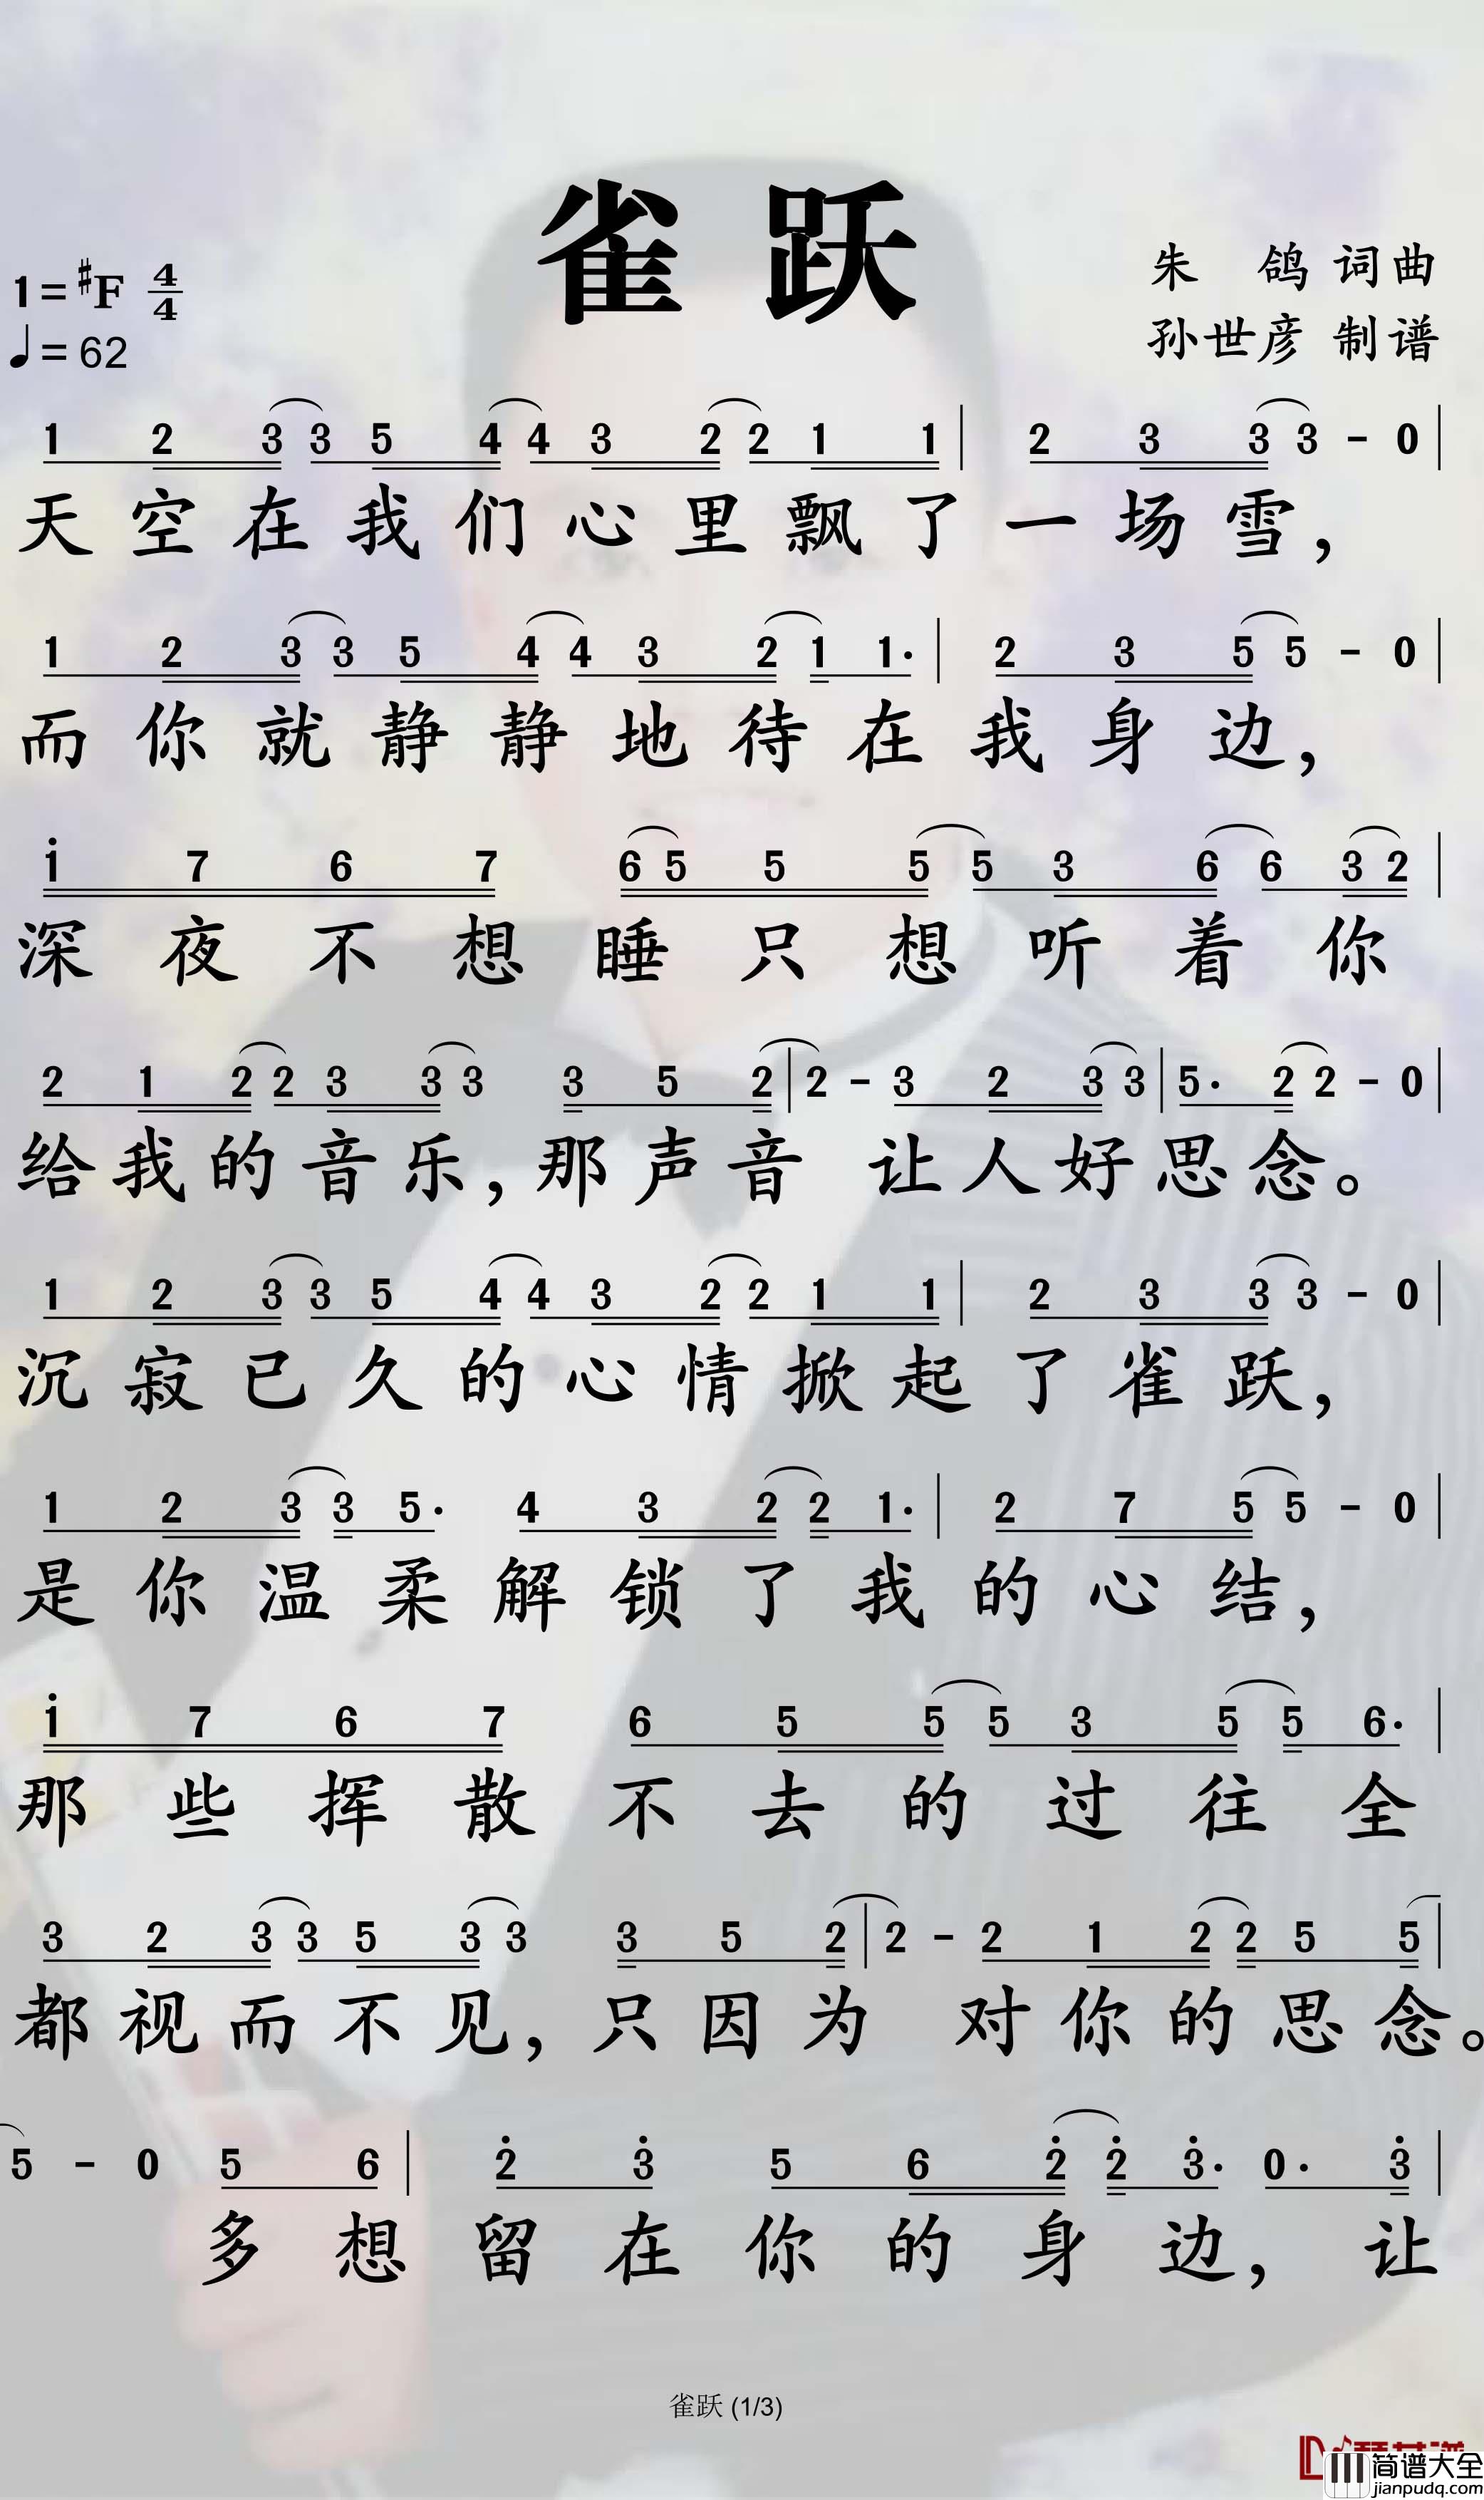 雀 跃
朱 鸽 词曲
1=♯F 4/4
孙世彦 制谱
♩=62
1 2 3 3 5 4 4 3 2 2 1 1 | 2 3 3 3 - 0 |
天空在我们心里飘了一场雪，
1 2 3 3 5 4 4 3 2 1 1· | 2 3 5 5 - 0 |
而你就静静地待在我身边，
i 7 6 7 6 5 5 5 5 3 6 6 3 2 |
深夜不想睡只想听着你
2 1 2 2 3 3 3 3 5 2 | 2 - 3 2 3 3 | 5· 2 2 - 0 |
给我的音乐，那声音 让人好思念。
1 2 3 3 5 4 4 3 2 2 1 1 | 2 3 3 3 - 0 |
沉寂已久的心情掀起了雀跃，
1 2 3 3 5· 4 3 2 2 1· | 2 7 5 5 - 0 |
是你温柔解锁了我的心结，
i 7 6 7 6 5 5 5 3 5 5 6· |
那些挥散不去的过往全
3 2 3 3 5 3 3 3 5 2 | 2 - 2 1 2 2 5 5 |
都视而不见，只因为 对你的思念。
5 - 0 5 6 | 2̇ 3̇ 5 6 2̇ 2̇ 3̇· 0· 3̇ |
多想留在你的身边，让
雀跃 (1/3)
简谱大全
jianpudq.com